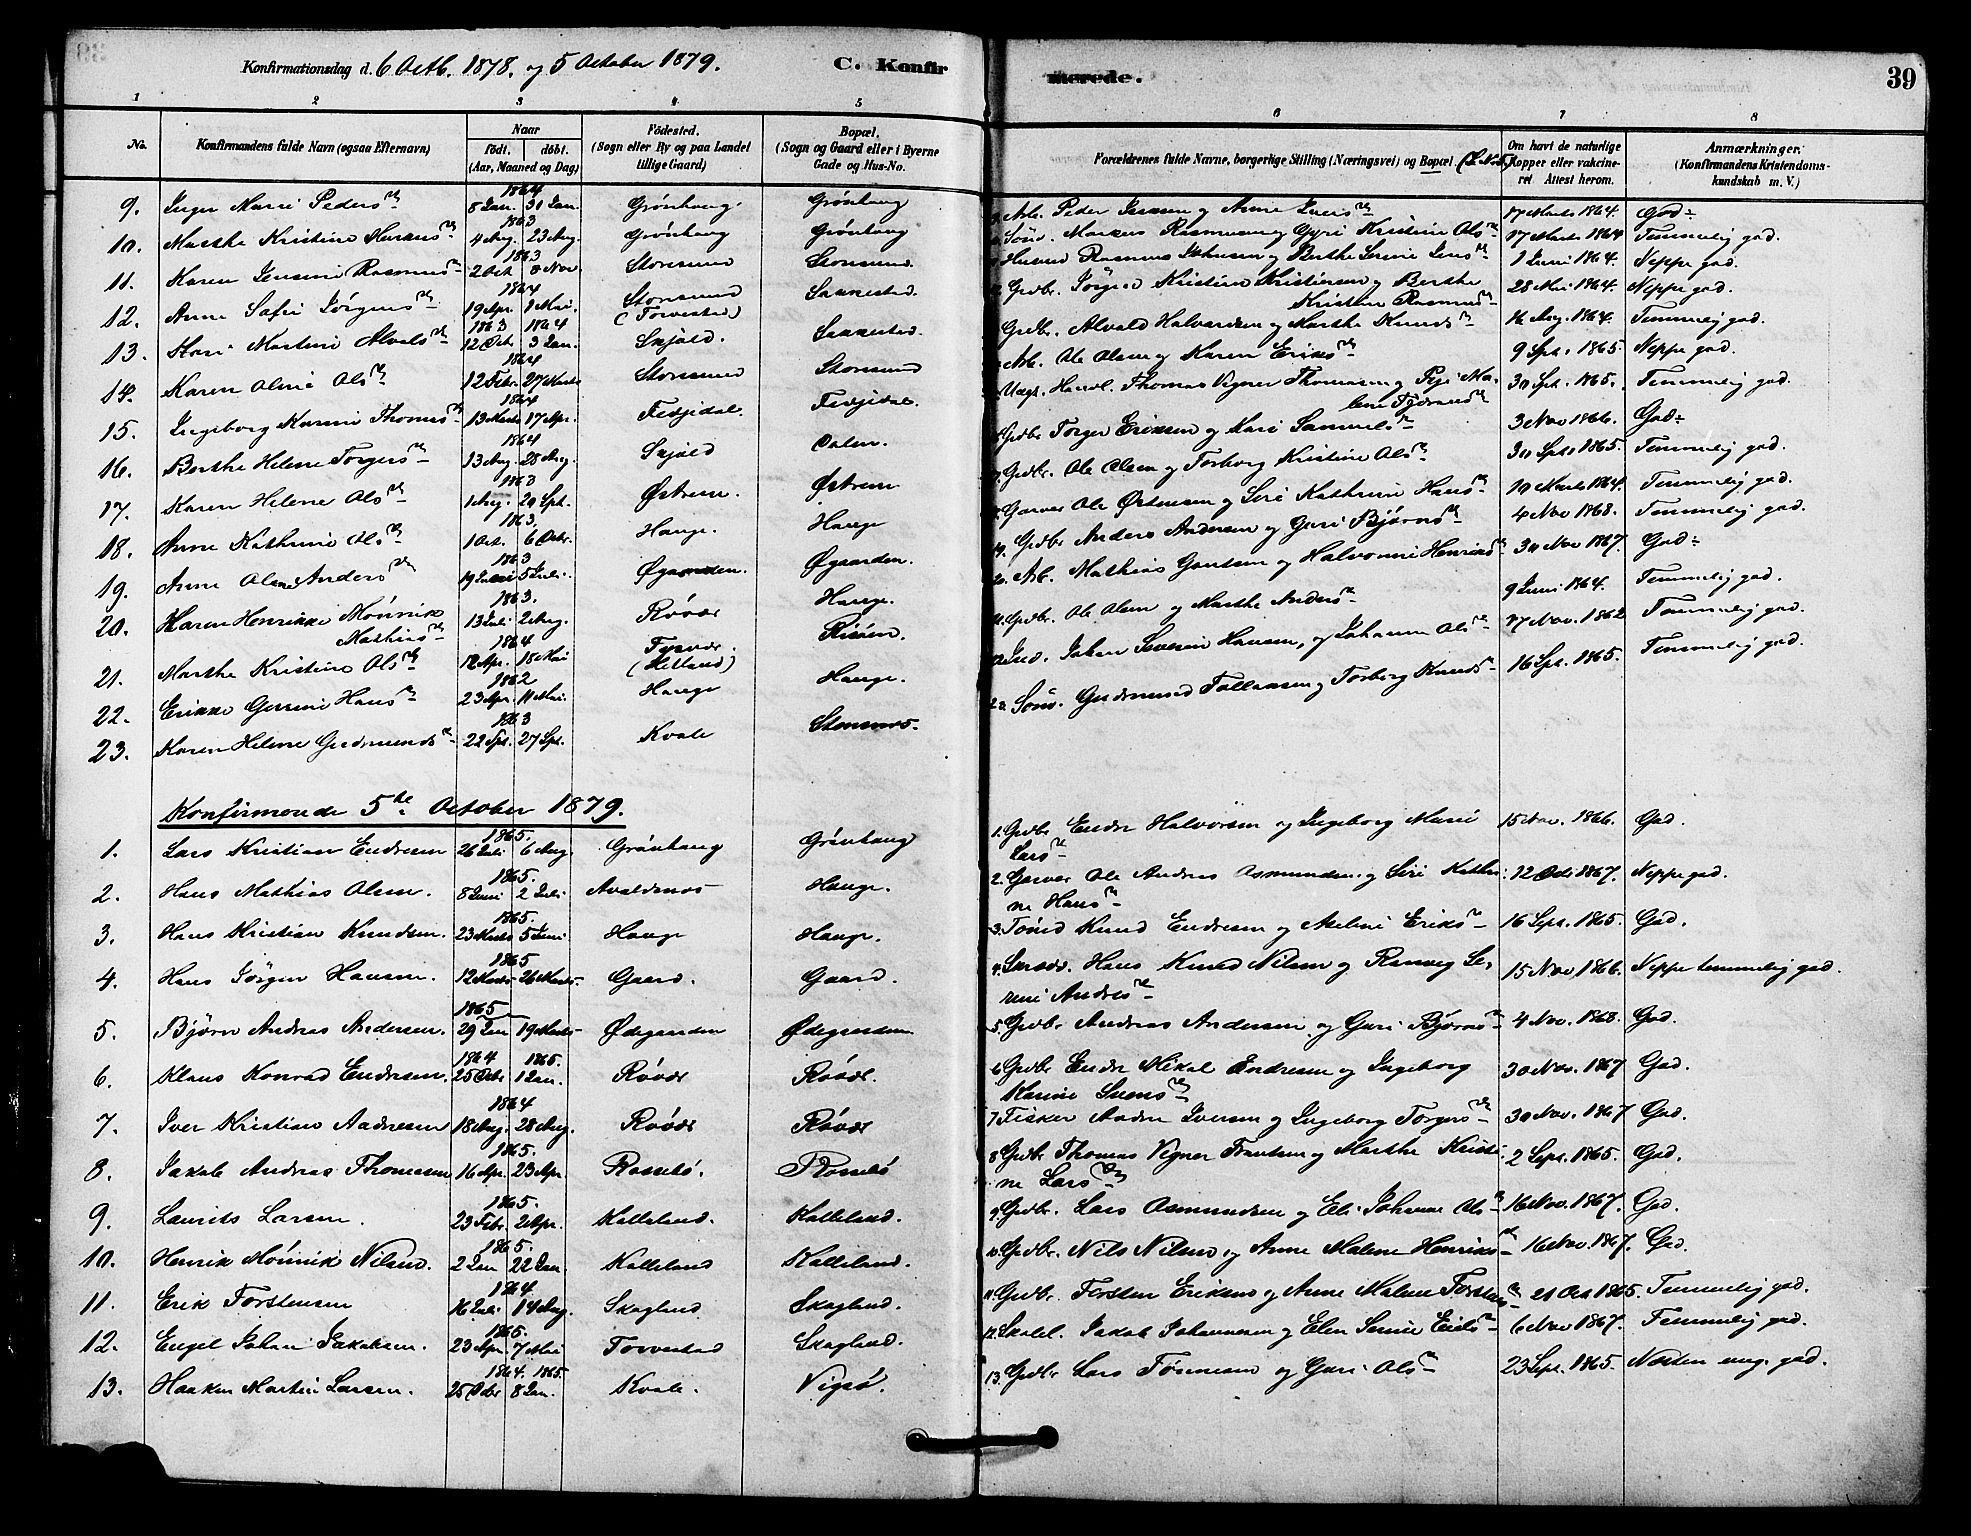 Konfirmationsdag d. 6 Octb. 1878. og 5 October 1879. C. Konfirmerede. 39
1 2 3 4 5 6 7 8
No. Konfirmandens fulde Navn (ogsaa Efternavn) Naar födt. döbt. (Aar, Maaned og Dag) Födested. (Sogn eller By og paa Landet tillige Gaard) Bopæl. (Sogn og Gaard eller i Byerne Gade og Hus-No. Forældrenes fulde Navne, borgerlige Stilling (Næringsvei) og Bopæl. Om havt de naturlige Kopper eller vakcineret Attest herom. Anmærkninger. (Konfirmandens Kristendomskundskab m. V.)
9. Inger Marie Peders 1864 8 Jan. 31 Jan. Grönhaug. Grönhaug Arb. Peder og Anne 17 Marts 1864. God
10. Marthe Kristine 1863 4 Aug. 23 Aug. Grönhaug Grönhaug Rasmussen og Gyri Kristine Ols 17 Marts 1864 Temmelig god.
11. Karen Jensine Rasmus 1863 2 Oct. 8 Nov Storesund Storesund. Husmd Rasmus Johnsen og Berthe Serine Jens 1 Juni 1864. Neppe god.
12. Anne Sofie Jörgens 1864 19 Apr. 1 Mai. Storesund (Torvestad) Saanested. Grdbr. Jörgen Kristian Kristiansen og Berthe Kristine Rasmus 28 Mai 1864. Neppe god.
13. Kari Martine Alvals 1863 12 Octbr. 1864 3 Jan. Skjold. Saanested. Grdbr. Alvald Halvardsen og Marthe Knuds 16 Aug. 1864. Temmelig god.
14. Karen Oline Ols 1864 12 Febr. 27 Marts Storesund Storesund Arb. Ole Olsen og Karen Eriks 9 Spt. 1865. Neppe god.
15. Ingeborg Karine Thomas 1864 13 Marts 17 Apr. Feðjedal. Feðjedal. Handl. Thomas Vigner Thomasen og Malene 30 Spt. 1865. Temmelig god.
16. Berthe Helene Torgers 1864 13 Aug. 28 Aug. Skjold Dalen. Grdbr Torger Eriksen og Kari Samuels 3 Nov 1866. God
17. Karen Helene Ols 1863 1 Aug. 20 Spt. Østrem. Østrem Grdbr. Ole Olsen og Torborg Kristine Ols 30 Spt. 1865. Temmelig god.
18. Anne Kathrine Ols 1863. 1 Oct. 6 Octbr. Hauge. Hauge Garver Ole Østensen og Siri Kathrine Hans 10 Marts 1864. Temmelig god.
19. Anne Oline Anders 1863 19 Juni 5 Juli. Øgaarden. Øgaarden. Grdbr Anders Andersen og Guri Björns 4 Nov 1868. Temmelig god.
20. Karen Henrikke Mönnik Mathias 1863. 13 Juli 2 Aug. Rövær Hauge. Arb. Mathias og Halvorine Henriks 30 Nov 1867. God
21. Marthe Kristine Ols 1864 12 Apr. 18 Mai Tysvær. (Hetland) Risöen. Grdbr. Ole Olsen og Marthe Anders 9 Juni 1864. Temmelig god.
22. Erikke Gurine Hans 1862 23 Apr. 11 Mai. Hauge Hauge. Johan Severin Hansen, og Johanne Ols 17 Nov. 1862 Temmelig god.
23. Karen Helene Gudmunds 1863 22 Spt. 27 Spt. Kvale Storesund. Gudmund Tollaksen og Torborg Knuds 16 Spt. 1865. Temmelig god.
Konfirmerede 5te October 1879.
1. Lars Kristian Endresen 1865. 26 Juli 6 Aug. Grönhaug Grönhaug 1. Grdbr Endre Halvorsen og Ingeborg Marie Lars 15 Nov. 1866. God.
2. Hans Mathias Olsen. 1865. 8 Juni 2 Juli Avaldsnes Hauge. 2. Garver Ole Andreas Osmundsen, og Siri Kathrine Hans 12 Oct 1867. Neppe god.
3. Hans Kristian Knudsen. 1865. 23 Marts 5 Juni Hauge Hauge. 3. Knud Endresen og Eriks 16 Sept. 1865. God.
4. Hans Jörgen Hansen. 1865 12 Marts 26 Marts Gaard. Gaard. 4. Skræd. Hans Knud Nilsen og Ranveig Serine Andreas 15 Nov 1866. Neppe temmelig god.
5. Björn Andreas Andersen. 1865 29 Jan 19 Marts Ødegaarden Ødegaarden 5. Grdbr Andreas Andersen og Guri Björns 4 Nov. 1868. God.
6. Klaus Konrad Endresen. 1864 25 Octbr 1865. 1 Jan. Rövær Rövær. 6. Grdbr Endre Mikal Endresen og Ingeborg Karine Svens 30 Nov. 1867 God.
7. Iver Kristian Aadnesen 1864 18 Aug. 28 Aug. Rövær Rövær 7. Fisker Aadne Iversen og Ingeborg Torgers 30 Nov. 1867 God.
8. Jakob Andreas Thomasen 1865. 16 Apr. 23 Apr. Rossebö. Rossebö 8. Grdbr Thomas Vigner og Marthe Kristine Lars 2 Sept. 1865. God.
9. Laurits Larsen. 1865. 23 Febr. 2 Apr. Kalleland. Kalleland. 9. Grdbr. Lars Osmundsen og Eli Johanne Ols 16 Nov. 1867. God.
10. Henrik Mönnik Nilsen. 1865. 2 Jan 22 Jan. Kalleland Kalleland. 10. Grdbr. Nils Nilsen og Anne Malene Henriks 16 Nov. 1867. God.
11. Erik Torstensen 1864 16 Juli 14 Aug. Skagland Skagland. 11. Grdbr. Torsten Eriksen og Anne Malene Torstens 21 Oct 1865. Temmelig god.
12. Engel Johan Jakobsen. 1865. 23 Apr. 7 Mai Torvestad Skagland. 12. Jakob Johannesen og Elen Serine Eriks 6 Nov 1867. Temmelig god.
13. Haaken Martin Larsen. 1864. 25 Octbr 1865. 8 Jan. Kvale. Vigsö. 13. Grdbr Lars Tönnesen og Guri Ols 23 Sept. 1865. Næsten meg. god.